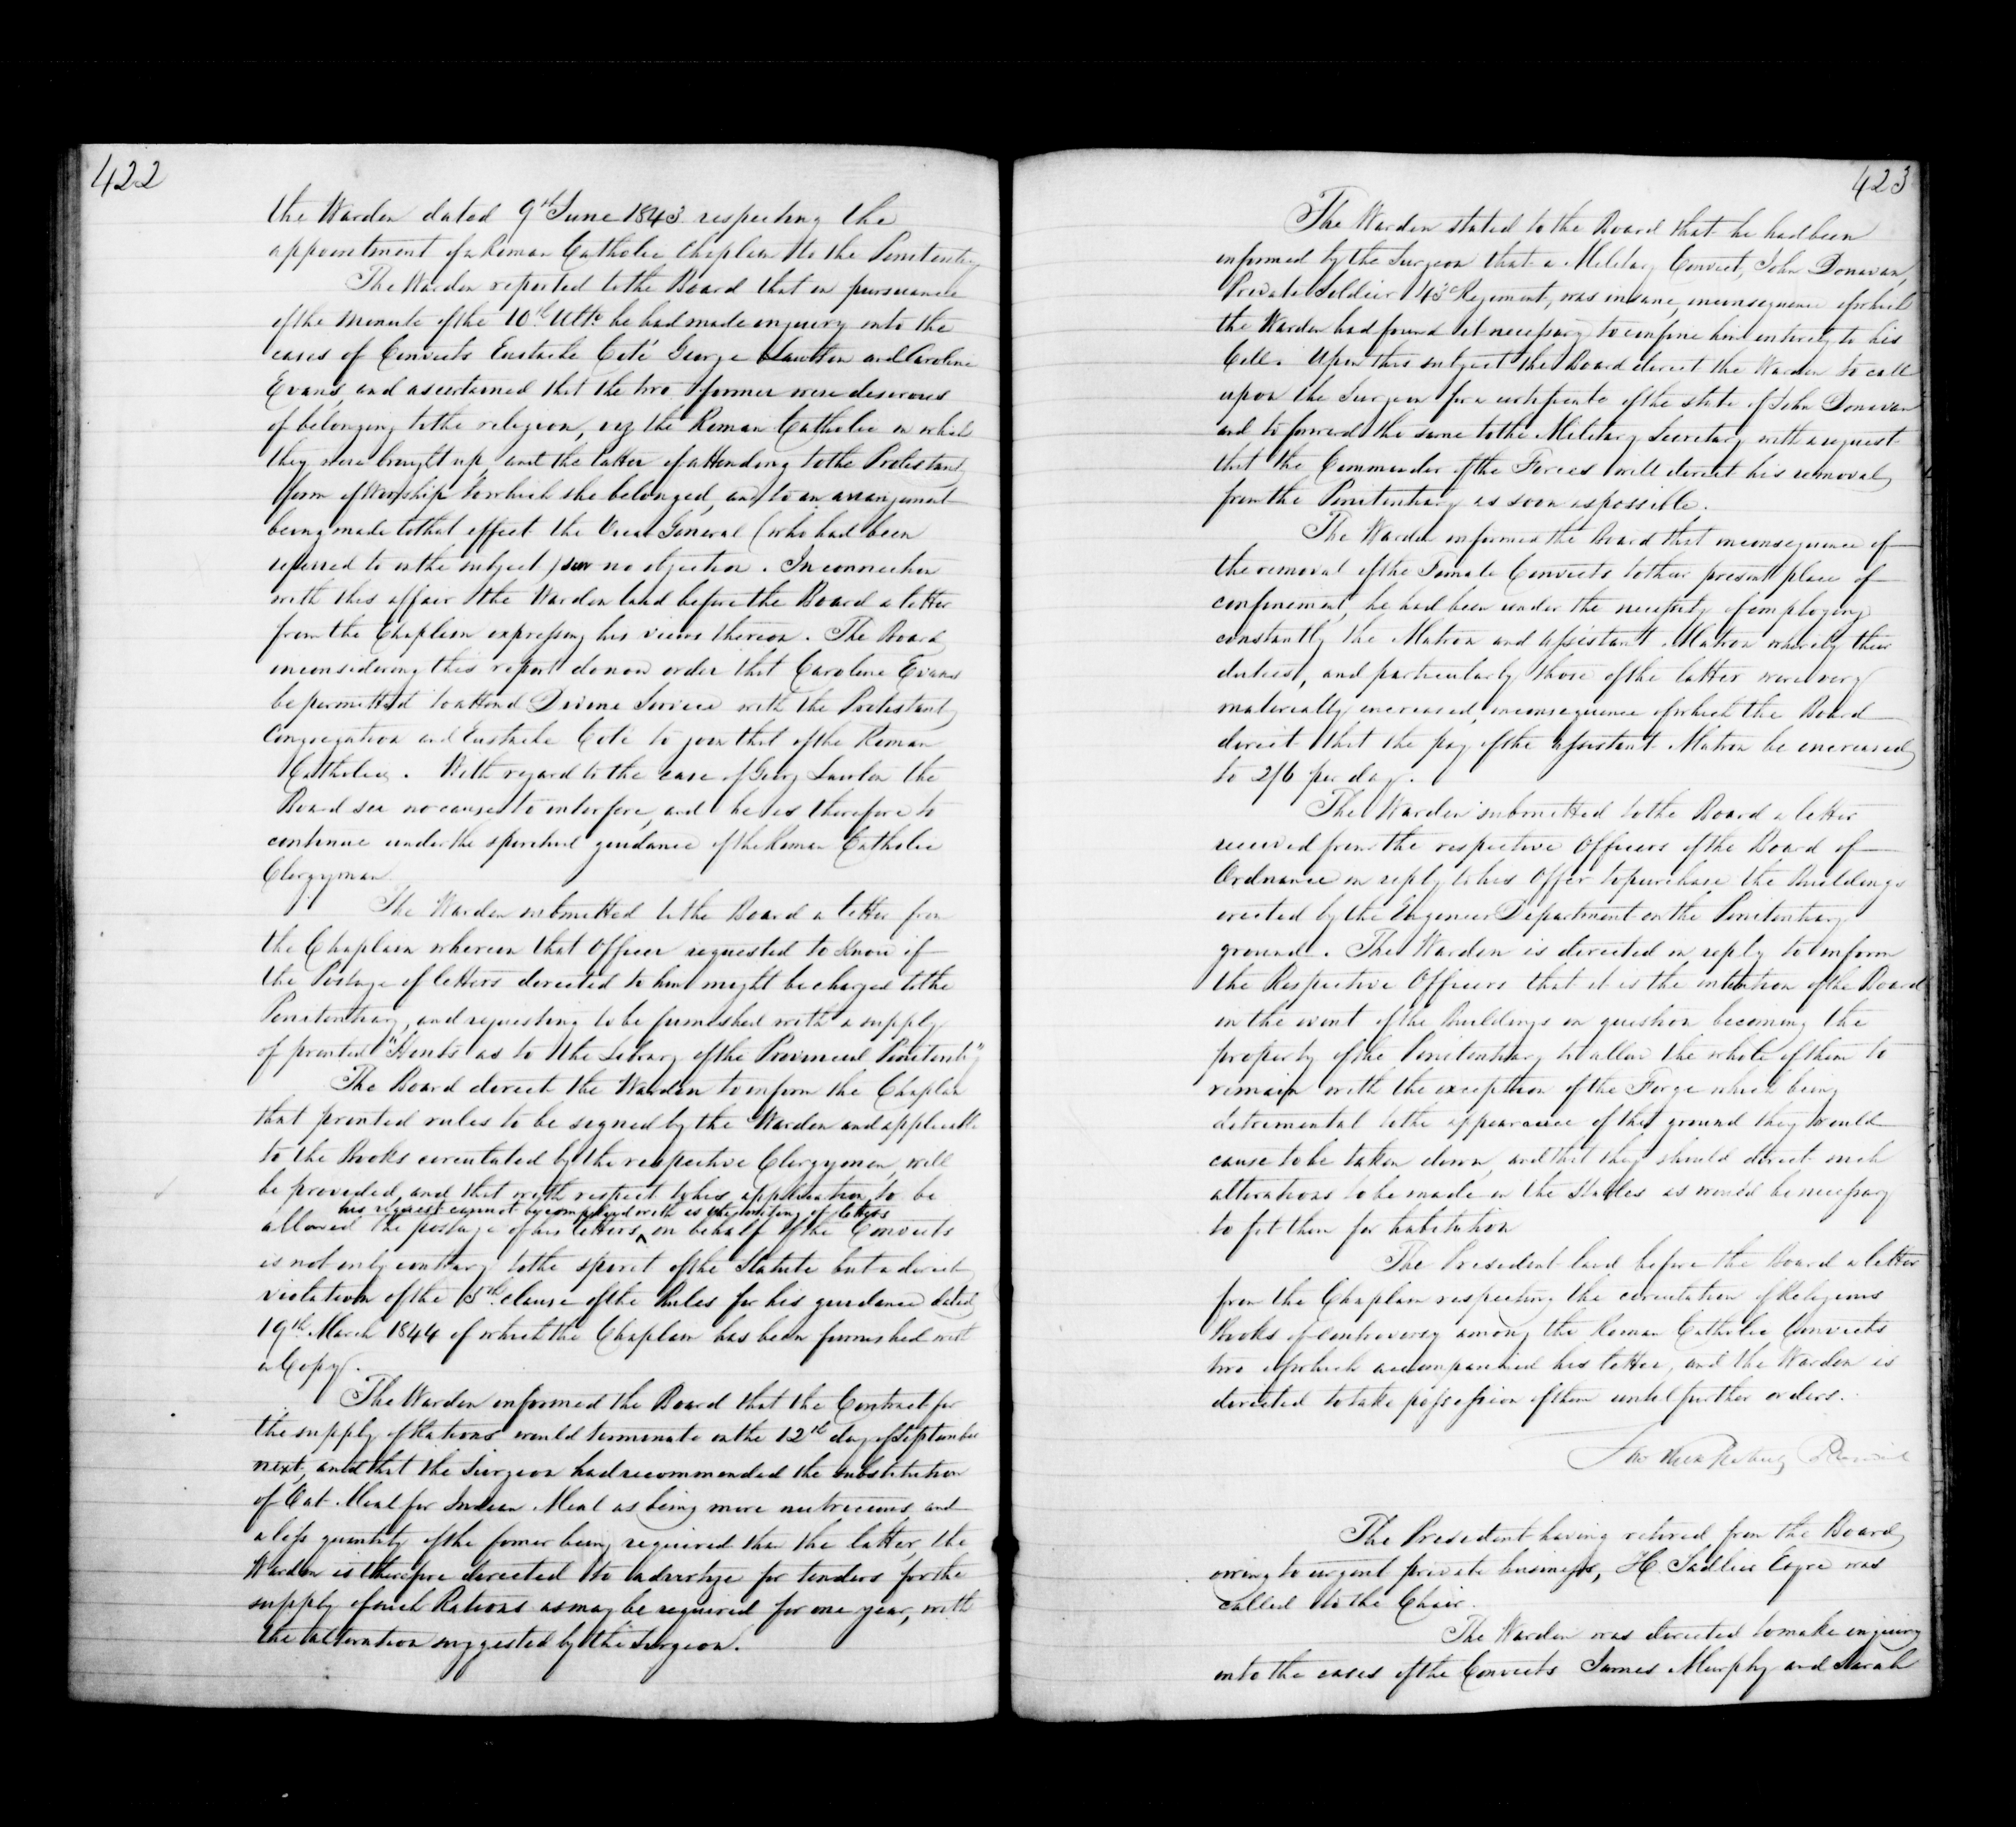 422
the Warden dated 9th June 1843 respecting the
appointment of a Roman Catholic Chaplain to the Penitenty
The Warden reported to the Board that in pursuance
of the Minute of the 10th Ulto he had made enquiry into the
cases of Convicts Eustache Coté George Lawton and Caroline
Evans, and ascertained that the two former were desirous
of belonging to the religion, viz the Roman Catholic in which
they were brought up, and the latter of attending to the Protestant
form of Worship to which she belonged, and to an arrangement
being made to that effect the Vicar General (who had been
referred to on the subject) saw no objection. In connection
with this affair the Warden laid before the Board a letter
from the Chaplain expressing his views thereon. The Board
in considering this report do now order that Caroline Evans
be permitted to attend Divine Service with the Protestant
Congregation and Eustache Coté to join that of the Roman
Catholics. With regard to the case of Georg Lawton the
Board see no cause to interfere, and he is therefore to
continue under the spiritual guidance of the Roman Catholic
Clergyman
The Warden submitted to the Board a letter from
the Chaplain wherein that Officer requested to know if
the Postage of letters directed to him might be charged to the
Penitentiary, and requesting to be furnished with a supply
of printed "Hints as to the Library of the Provincial Penitenty"
The Board direct the Warden to inform the Chaplain
that printed rules to be signed by the Warden and applicable
to the Books circulated by the respective Clergymen, will
be provided, and that with respect to his application to be
his request cannot be complied with as the writing of letters
allowed the postage of his letters, on behalf of the Convicts
is not only contrary to the spirit of the Statute but a direct
violation of the 15th clause of the Rules for his guidance dated
19th March 1844 of which the Chaplain has been furnished with
a Copy.
The Warden informed the Board that the Contract for
the supply of Rations would terminate on the 12th day of September
next, and that the Surgeon had recommended the substitution
of Oat Meal for Indian Meal as being more nutricious, and
a less quantity of the former being required than the latter, the
Warden is therefore directed to advertize for tenders for the
supply of such Rations as may be required for one year, with
the alteration suggested by the Surgeon.
423
The Warden stated to the Board that he had been
informed by the Surgeon that a Military Convict, John Donavan,
Private Soldier 43d Regiment, was insane, in consequence of which
the Warden had found it necessary to confine him entirely to his
Cell. Upon this subject the Board direct the Warden to call
upon the Surgeon for a certificate of the state of John Donavan
and to forward the same to the Military Secretary with a request
that the Commander of the Forces will direct his removal
from the Penitentiary as soon as possible.
The Warden informed the Board that in consequence of
the removal of the Female Convicts to their present place of
confinement, he had been under the necessity of employing
constantly the Matron and Assistant Matron whereby their
duties, and particularly those of the latter were very
materially increased, in consequence of which the Board
direct that the pay of the Assistant Matron be increased
to 2/6 per day.
The Warden submitted to the Board a letter
received from the respective Officers of the Board of
Ordnance in reply to his Offer to purchase the Buildings
erected by the Engineer Department on the Penitentiary
ground. The Warden is directed in reply to inform
the Respective Officers that it is the intention of the Board
in the event of the Buildings in question becoming the
property of the Penitentiary to allow the whole of them to
remain with the exception of the Forge which being
detrimental to the appearance of the ground they would
cause to be taken down, and that they should direct such
alterations to be made in the Stables as would be necessary
to fit them for habitation
The President laid before the Board a letter
from the Chaplain respecting the circulation of Religious
Books of controversy among the Roman Catholic Convicts
two of which accompanied his letter, and the Warden is
directed to take possession of them until further orders.
The President having retired from the Board,
owing to urgent private business, H. Sadlier Esqre was
called to the Chair.
The Warden was directed to make enquiry
into the cases of the Convicts James Murphy and Sarah